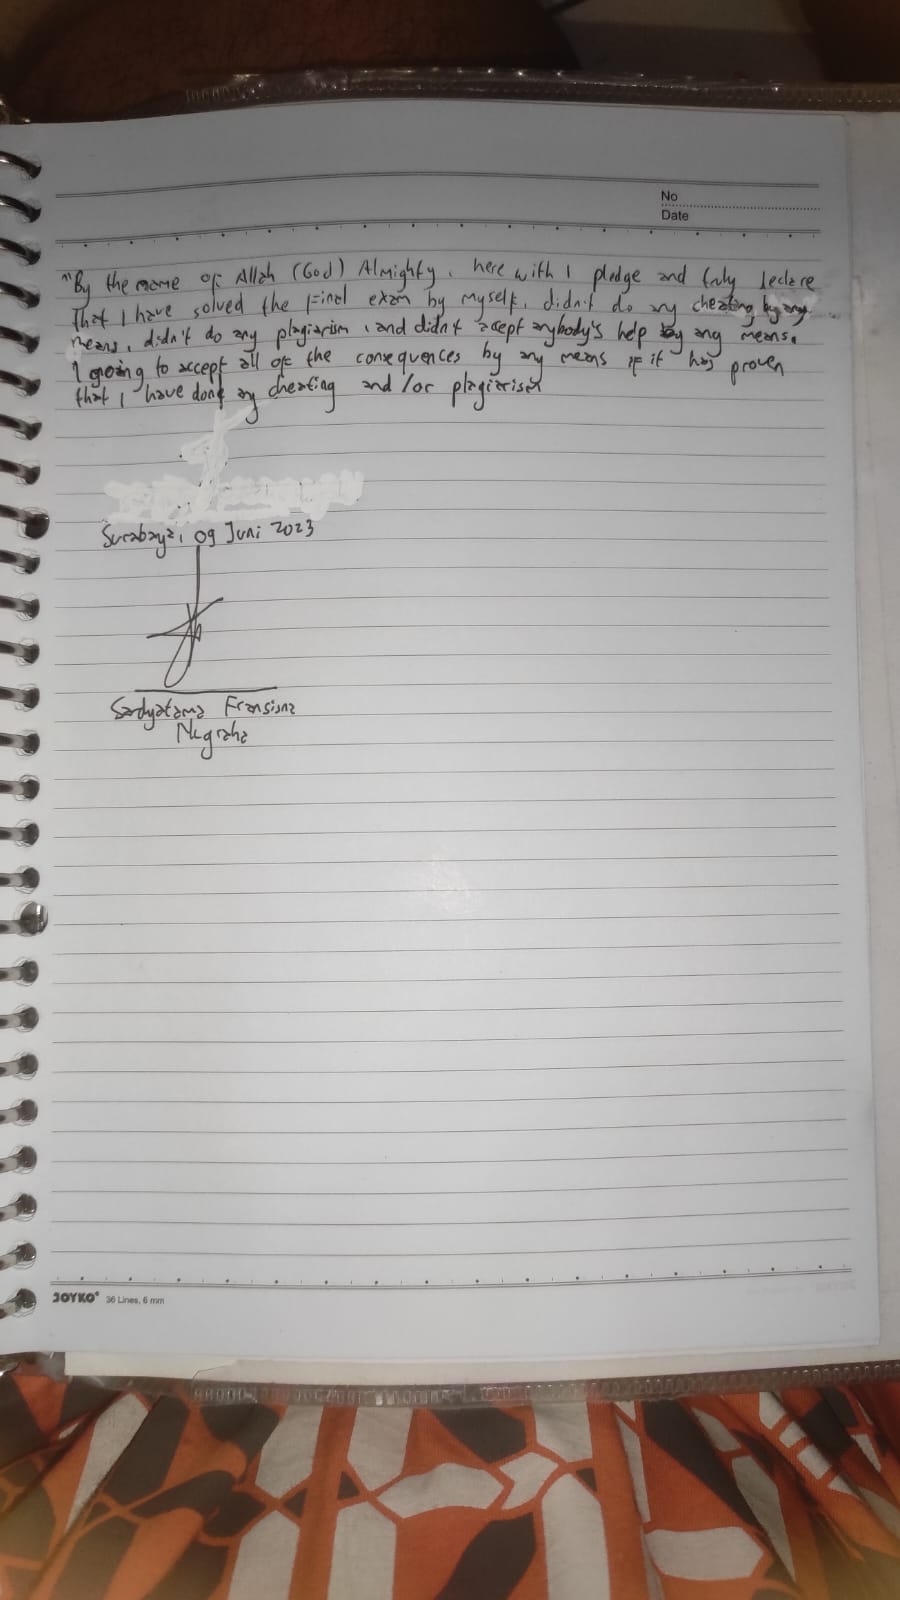 No
Date
"By the name of Allah (God) Almighty, here with I pledge and truly declare
That I have solved the Final exam by myself, didn't do any cheating by any
means, didn't do any plagiarism, and didn't accept anybody's help by any means.
I going to accept all of the consequences by any means if it has proven
that I have done any cheating and/or plagiarism
Surabaya, 09 Juni 2023
Sardyatama Fransisna
Nugraha
JOYKO® 36 Lines, 6 mm